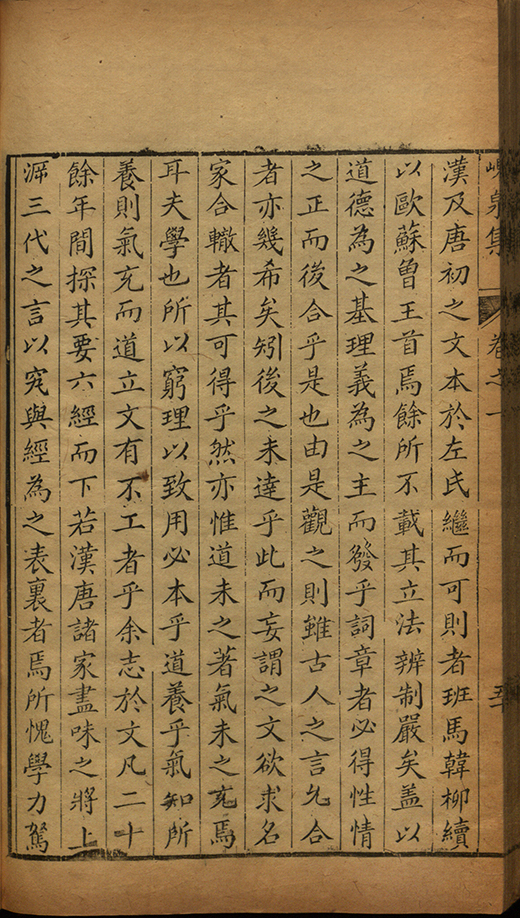 峴泉集 卷之一
漢及唐初之文本於左氏繼而可則者班馬韓柳續
以歐蘇曾王首焉餘所不載其立法辨制嚴矣盖以
道德為之基理義為之主而發乎詞章者必得性情
之正而後合乎是也由是觀之則雖古人之言允合
者亦幾希矣矧後之未達乎此而妄謂之文欲求名
家合轍者其可得乎然亦惟道未之著氣未之充焉
耳夫學也所以窮理以致用必本乎道養乎氣知所
養則氣充而道立文有不工者乎余志於文凡二十
餘年間探其要六經而下若漢唐諸家盡味之將上
泝三代之言以究與經為之表裏者焉所愧學力駑